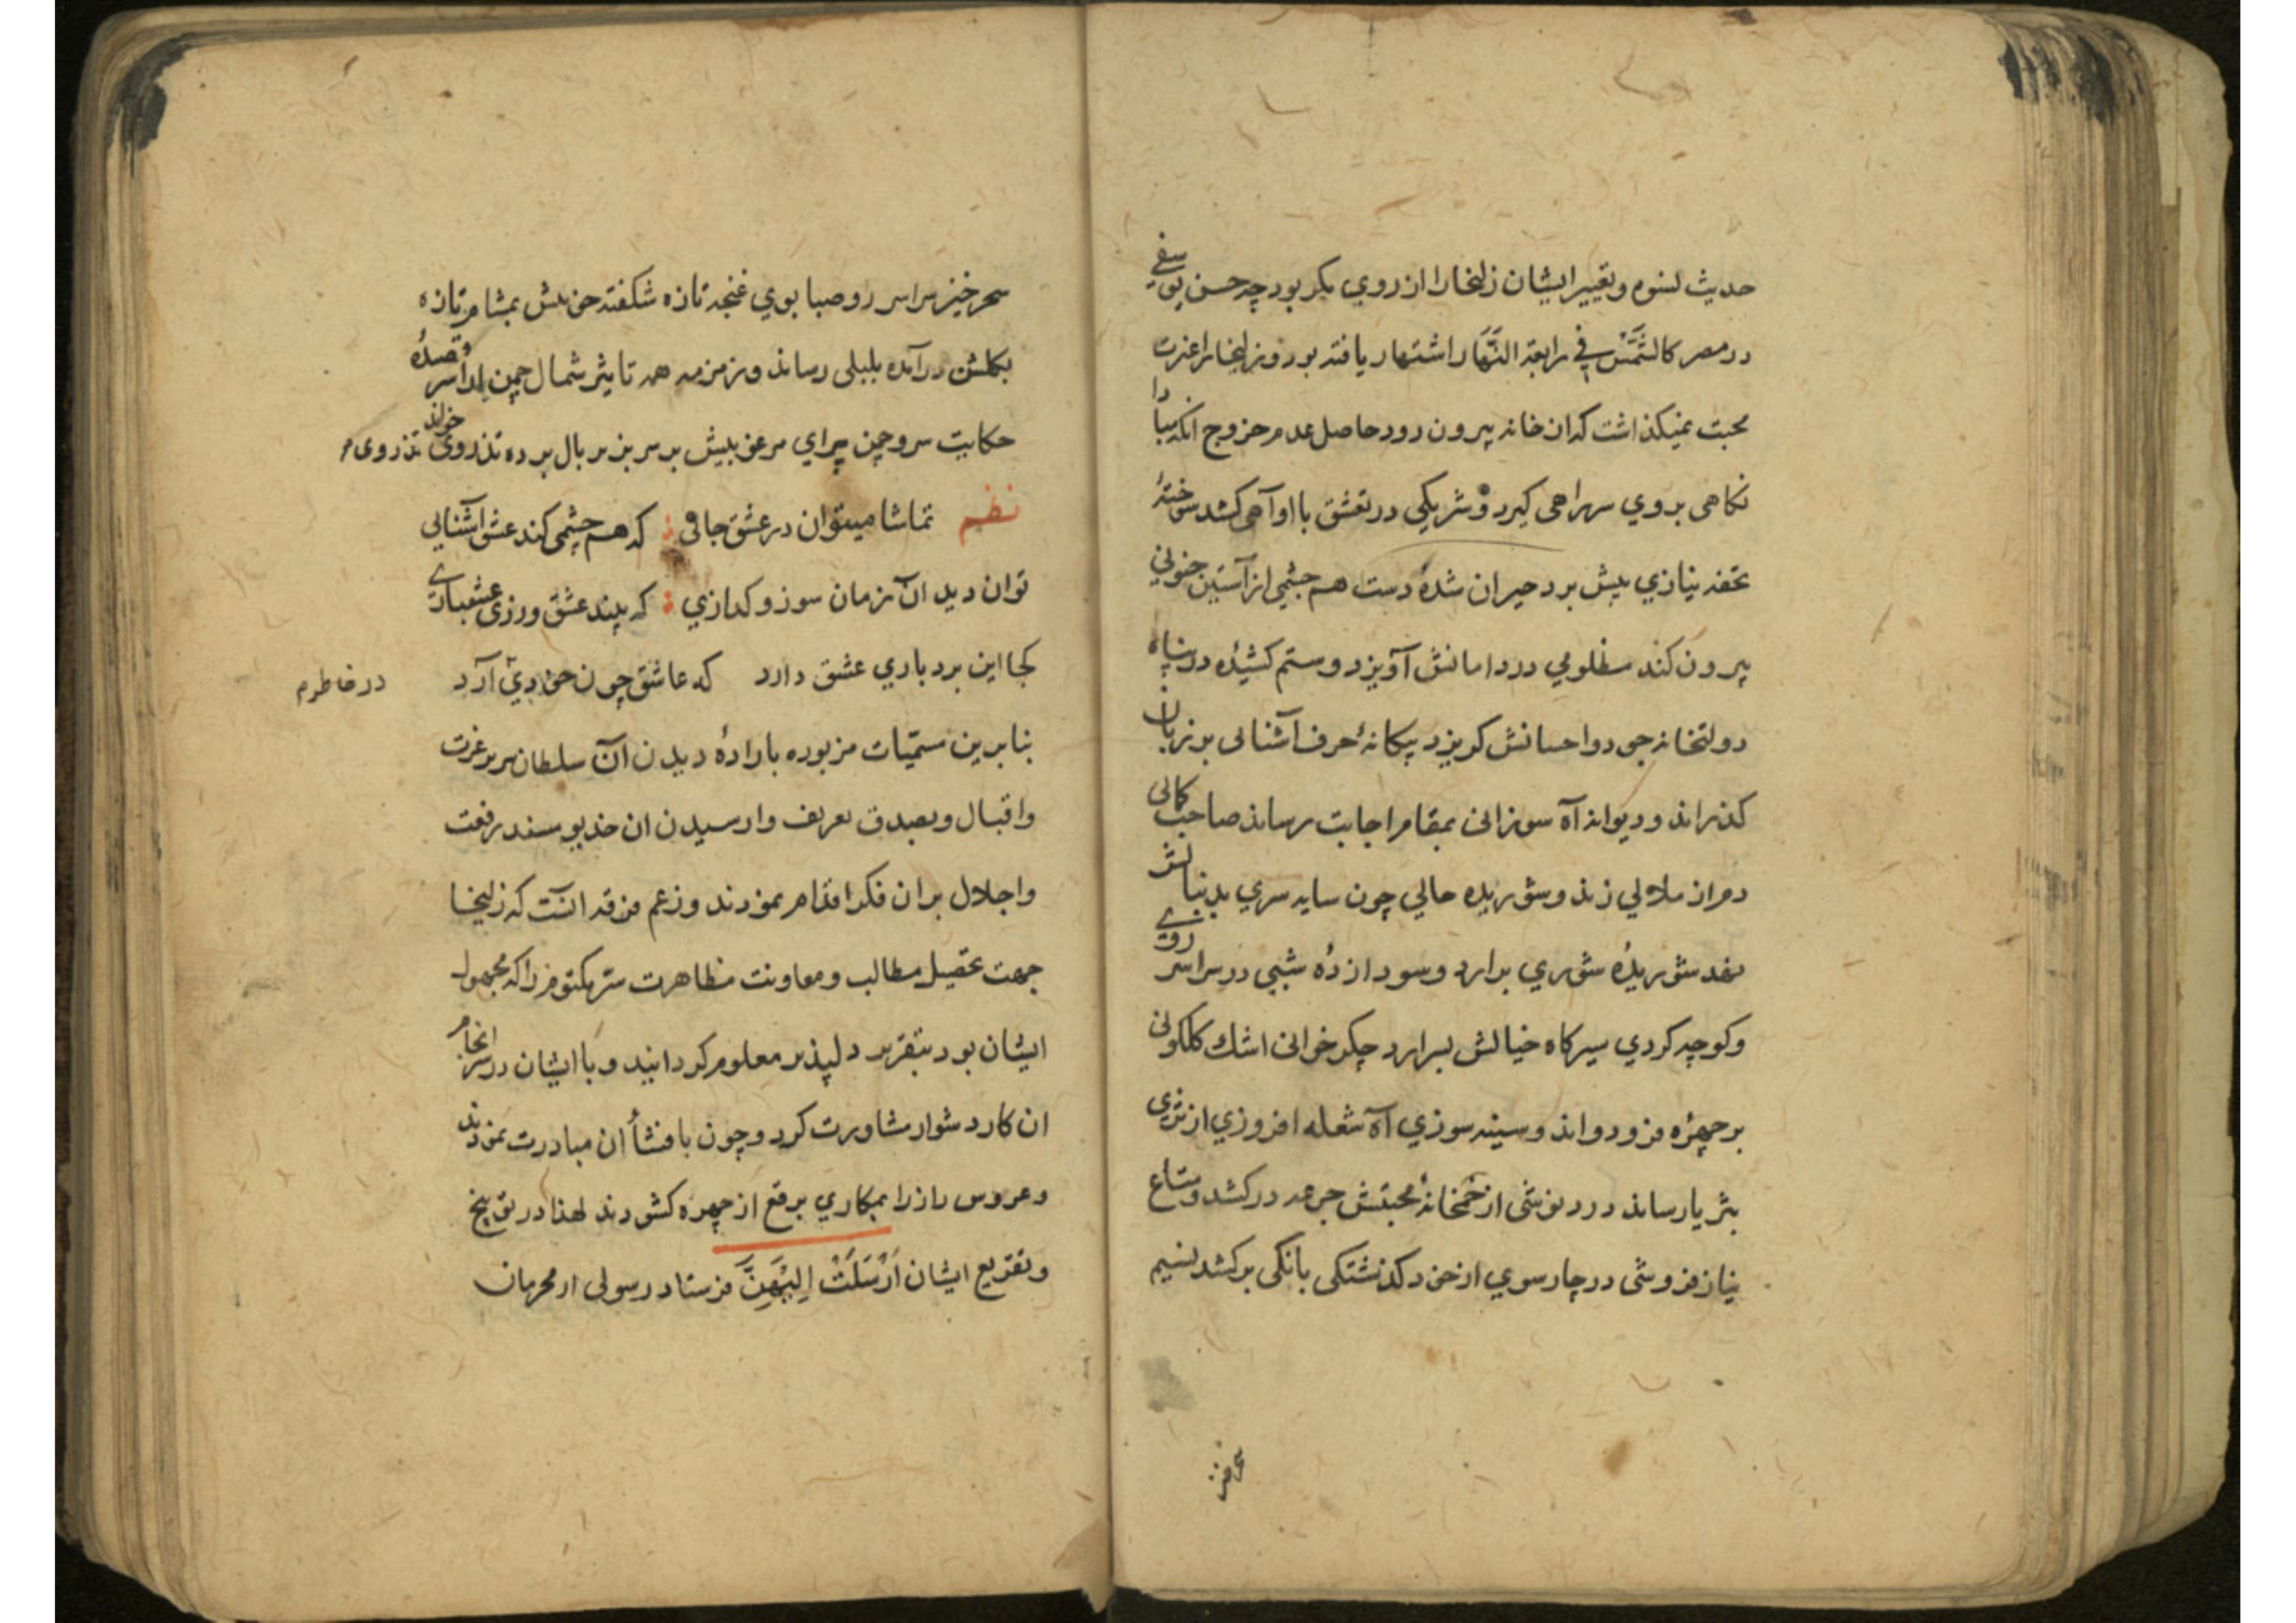 حدیث نسوه و تغییر ایشان زلیخا را از روی مکر بود چه حسن یوسفی
در مصر کالشَّمْس فی رابعة النَّهَار اشتهار یافته بود و زلیخا را غیرت
محبت نمیکذاشت که از خانه بیرون رود حاصل عدم خروج آنکه مبادا
نکاهی بروی سر راهی کیرد و شریکی در تعشق با او آهی کشد سوختهٔ
تحفه نیازی پیش برد حیران شدهٔ دست هم چشمی از آستین جنونی
بیرون کند مظلومی در دامانش آویزد و ستم کشیدهٔ در پناه
دولتخانه جود و احسانش کریزد بیکانهٔ حرف آشنائی بر زبان
کذراند و دیوانه آه سوزانی بمقام اجابت رساند صاحب کمالی
دم از ملالی زند و شوریده حالی چون سایه سری بدنبالش
نهد شوریدهٔ شوری برآرد و سودازدهٔ شبی در سراسر روی
و کوچه کردی سیرکاه خیالش بسرآرد جکرخوانی اشك کلکونی
بر چهره فرو دواند و سینه سوزی آه شعله افروزی از ثری
بثریا رساند دردنوشی از خُمخانهٔ محبتش جرعه درکشد و متاع
نیازفروشی در چارسوی از خود کذشتکی بانکی برکشد نسیم
سحرخیز سراسر رو صبا بوی غنچه تازه شکفته خوبش بمشام تازه
بکلشن درآمده بلبلی رساند و زمزمه همه تاثیر شمال چمن
حکایت سرو چمن پیرای مرغوبیش بر سر بزیر بال برده تذروی خواند
نظم تماشا میتوان در عشق جائی : که هم چشمی کند عشق آشنائی
توان دید آن زمان سوز و کدازی : که بیند عشق ورزی عشقبازی
کجا این بردباری عشق دارد که عاشق چون خودی آرد
در خاطرم
بنابرین ستمیات مزبوره بارادهٔ دیدن آن سلطان سریر عزت
و اقبال و بصدق تعریف وارسیدن آن خدیو مسند رفعت
و اجلال بر آن فکر اقدام نمودند و زعم فرقه آنست که زلیخا
جهت تحصیل مطالب و معاونت مظاهرت سرّ مکتوم را که مجهول
ایشان بود بتقریر دلپذیر معلوم کردانید و با ایشان در سرانجام
آن کار دشوار مشاورت کرد و چون بافشأ آن مبادرت نمودند
و عروس راز را بمکاری برقع از چهره کشودند لهذا در توبیخ
و تقریع ایشان اَرْسَلَتْ اِلَیْهِنَّ فرستاد رسولی از محرمان